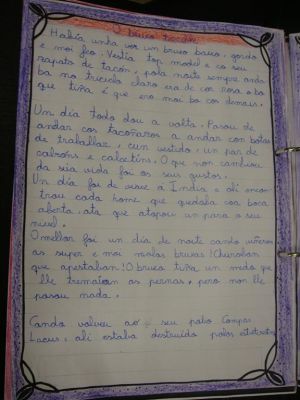 O bruxo tacón
Había unha vez un bruxo baixo, gordo
e moi feo. Vestía top model e co seu
zapato de tacón, pola noite sempre anda
ba no triciclo claro era de cor rosa o bo
que tiña é que era moi bo cos demais.
Un día todo dou a volta. Pasou de
andar cos tacónazos a andar con botas
de traballar, cun vestido, un par de
calzóns e calcetíns. O que non cambiou
da súa vida foi os seus gustos.
Un día foi de viaxe á India e alí encon
trou cada home que quedaba coa boca
aberta, ata que atopou un para o seu
nivel.
O mellor foi un día de noite cando viñeron
as super e moi malas bruxas! Chuscaban
que apertaban! O bruxo tiña un medo que
lle tremaban as pernas, pero non lle
pasou nada.
Cando volveu ao seu patio Compas
Lacus, alí estaba destruído polos